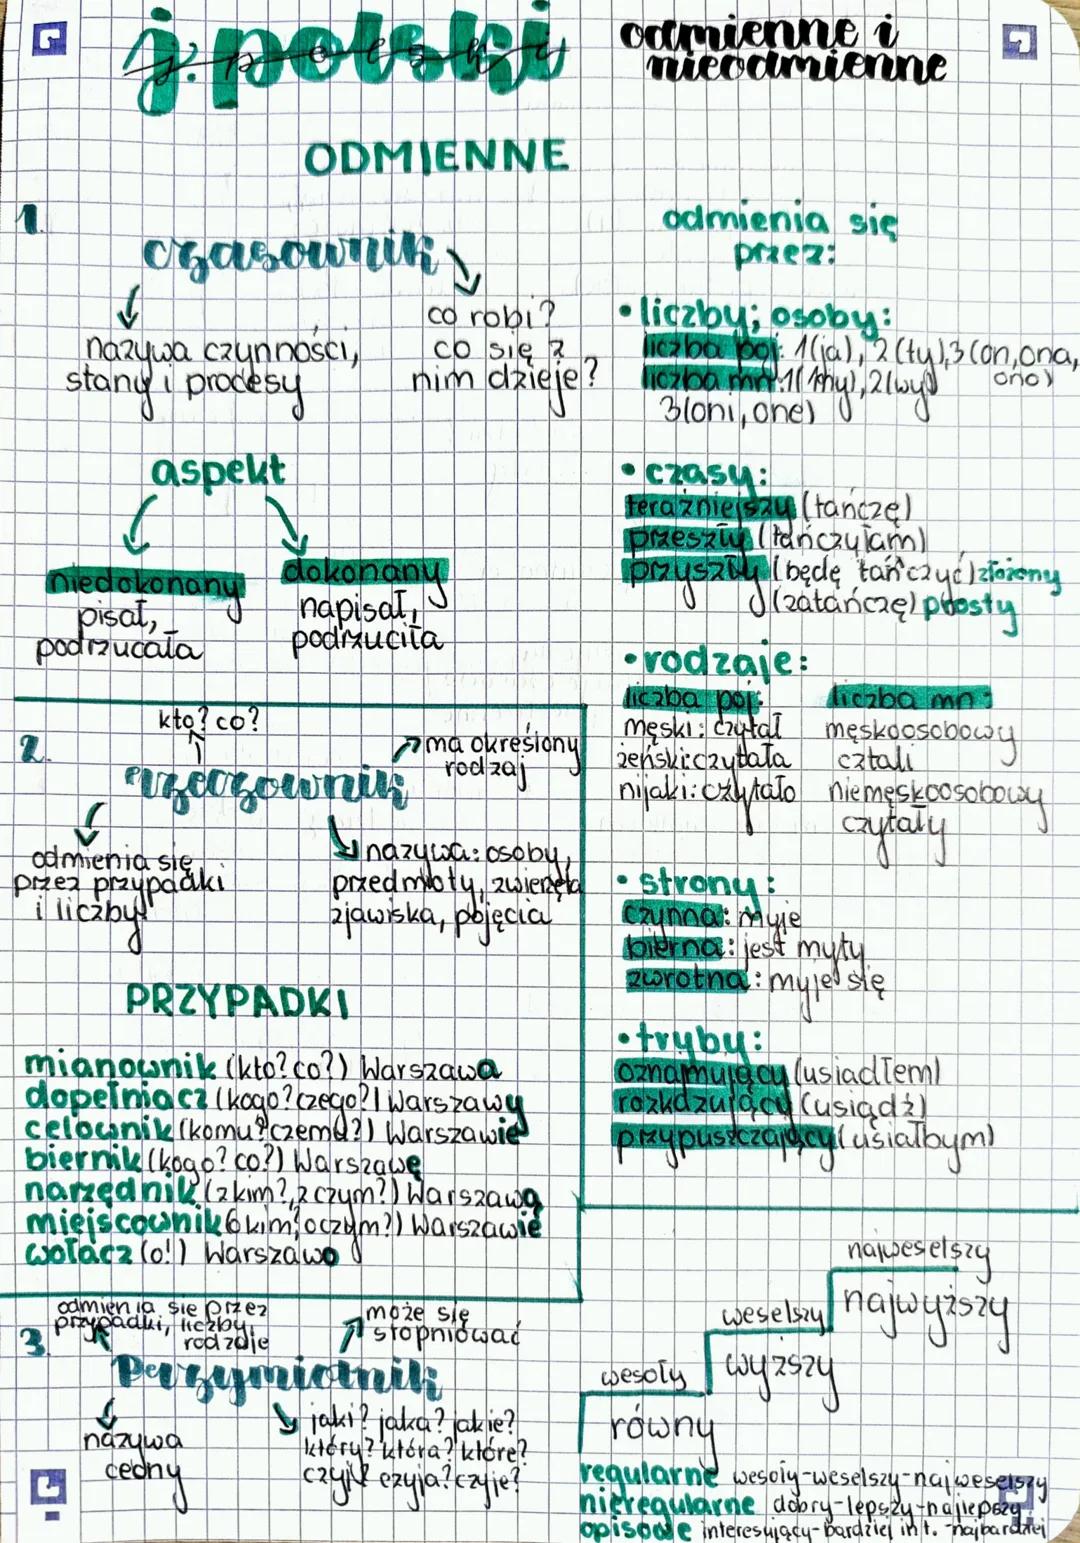 j. polski
odmienne i
nieodmienne
ODMIENNE
1.
czasownik
nazywa czynności,
stany i procesy
co robi?
co się z
nim dzieje?
aspekt
niedokonany
pisał,
podrzucała
dokonany
napisał,
podrzuciła
odmienia się
przez:
• liczby; osoby:
liczba poj: 1(ja), 2(ty),3(on,ona,
ono)
liczba mn:1(my),2(wy)
3(oni,one)
• czasy:
teraźniejszy (tańczę)
przeszły (tańczyłam)
przyszły (będę tańczyć) złożony
(zatańczę) prosty
• rodzaje:
liczba poj:
męski: czytał
żeński:czytała
nijaki:czytało
liczba mn:
męskoosobowy
cztali
niemęskoosobowy
czytały
• strony:
czynna: myje
bierna: jest myty
zwrotna: myje się
• tryby:
oznajmujący (usiadłem)
rozkazujący (usiądź)
przypuszczający (usiałbym)
2.
kto? co?
rzeczownik
ma określony
rodzaj
odmienia się
przez przypadki
i liczby
nazywa: osoby,
przedmioty, zwierzęta
zjawiska, pojęcia
PRZYPADKI
mianownik (kto?co?) Warszawa
dopełniacz (kogo?czego?) Warszawy
celownik (komu?czemu?) Warszawie
biernik (kogo? co?) Warszawę
narzędnik (z kim?,z czym?) Warszawą
miejscownik (o kim?o czym?) Warszawie
wołacz (o!) Warszawo
3.
odmienia się przez
przypadki, liczby,
rodzaje
może się
stopniować
Przymiotnik
nazywa
cechy
jaki? jaka? jakie?
który? która? które?
czyj? czyja? czyje?
najweselszy
weselszy
najwyższy
wesoły
wyższy
równy
regularne wesoły-weselszy-najweselszy
nieregularne dobry-lepszy-najlepszy
opisowe interesujący-bardziej int. -najbardziej